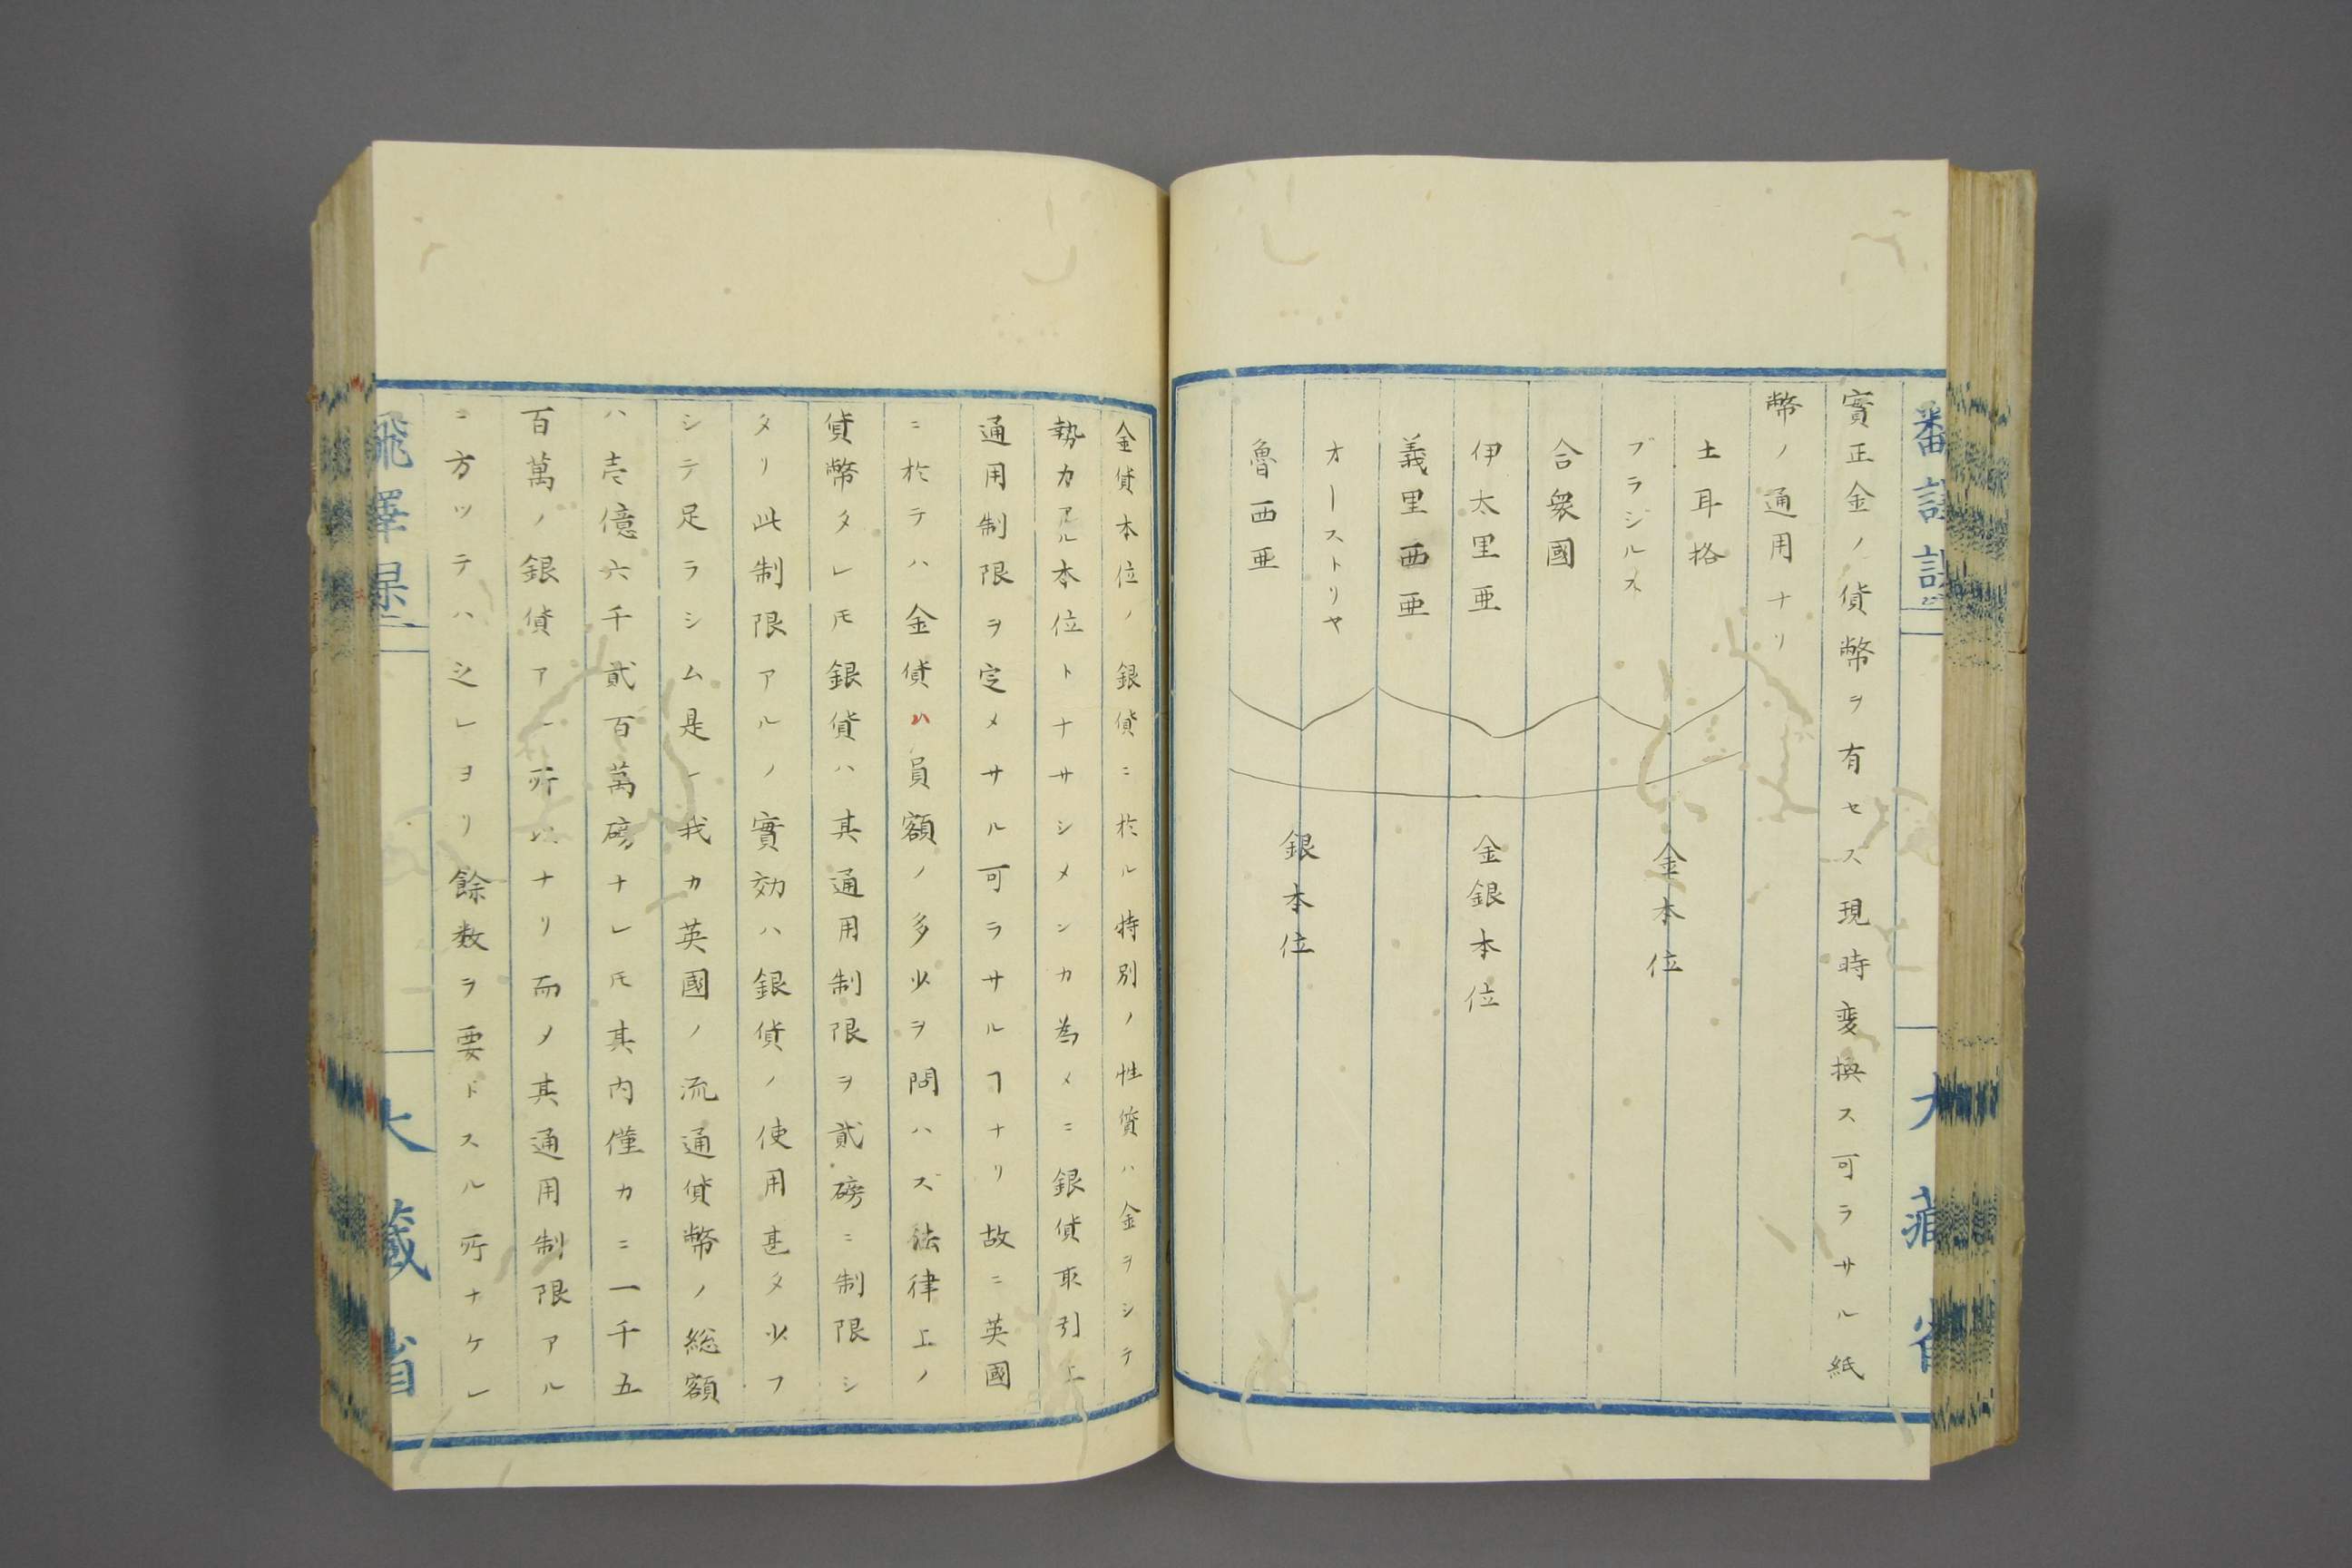 實正金ノ貨幣ヲ有セス現時変換ス可ラサル紙
幣ノ通用ナリ
土耳格
ブラジルス
金本位
合衆國
伊太里亜
義里西亜
金銀本位
オーストリヤ
魯西亜
銀本位
大蔵省
金貨本位ノ銀貨ニ於ル特別ノ性質ハ金ヲシテ
勢力アル本位トナサシメンカ為メニ銀貨取引上
通用制限ヲ定メサル可ラサルヿナリ故ニ英國
ニ於テハ金貨ハ員額ノ多少ヲ問ハズ法律上ノ
貨幣タレ𪜈銀貨ハ其通用制限ヲ貳磅ニ制限シ
タリ此制限アルノ實効ハ銀貨ノ使用甚タ少フ
シテ足ラシム是レ我カ英國ノ流通貨幣ノ総額
ハ壱億六千貳百萬磅ナレ𪜈其内僅カニ一千五
百萬ノ銀貨アル所以ナリ而メ其通用制限アル
ニ方ツテハ之レヨリ餘数ヲ要トスル所ナケレ
大蔵省